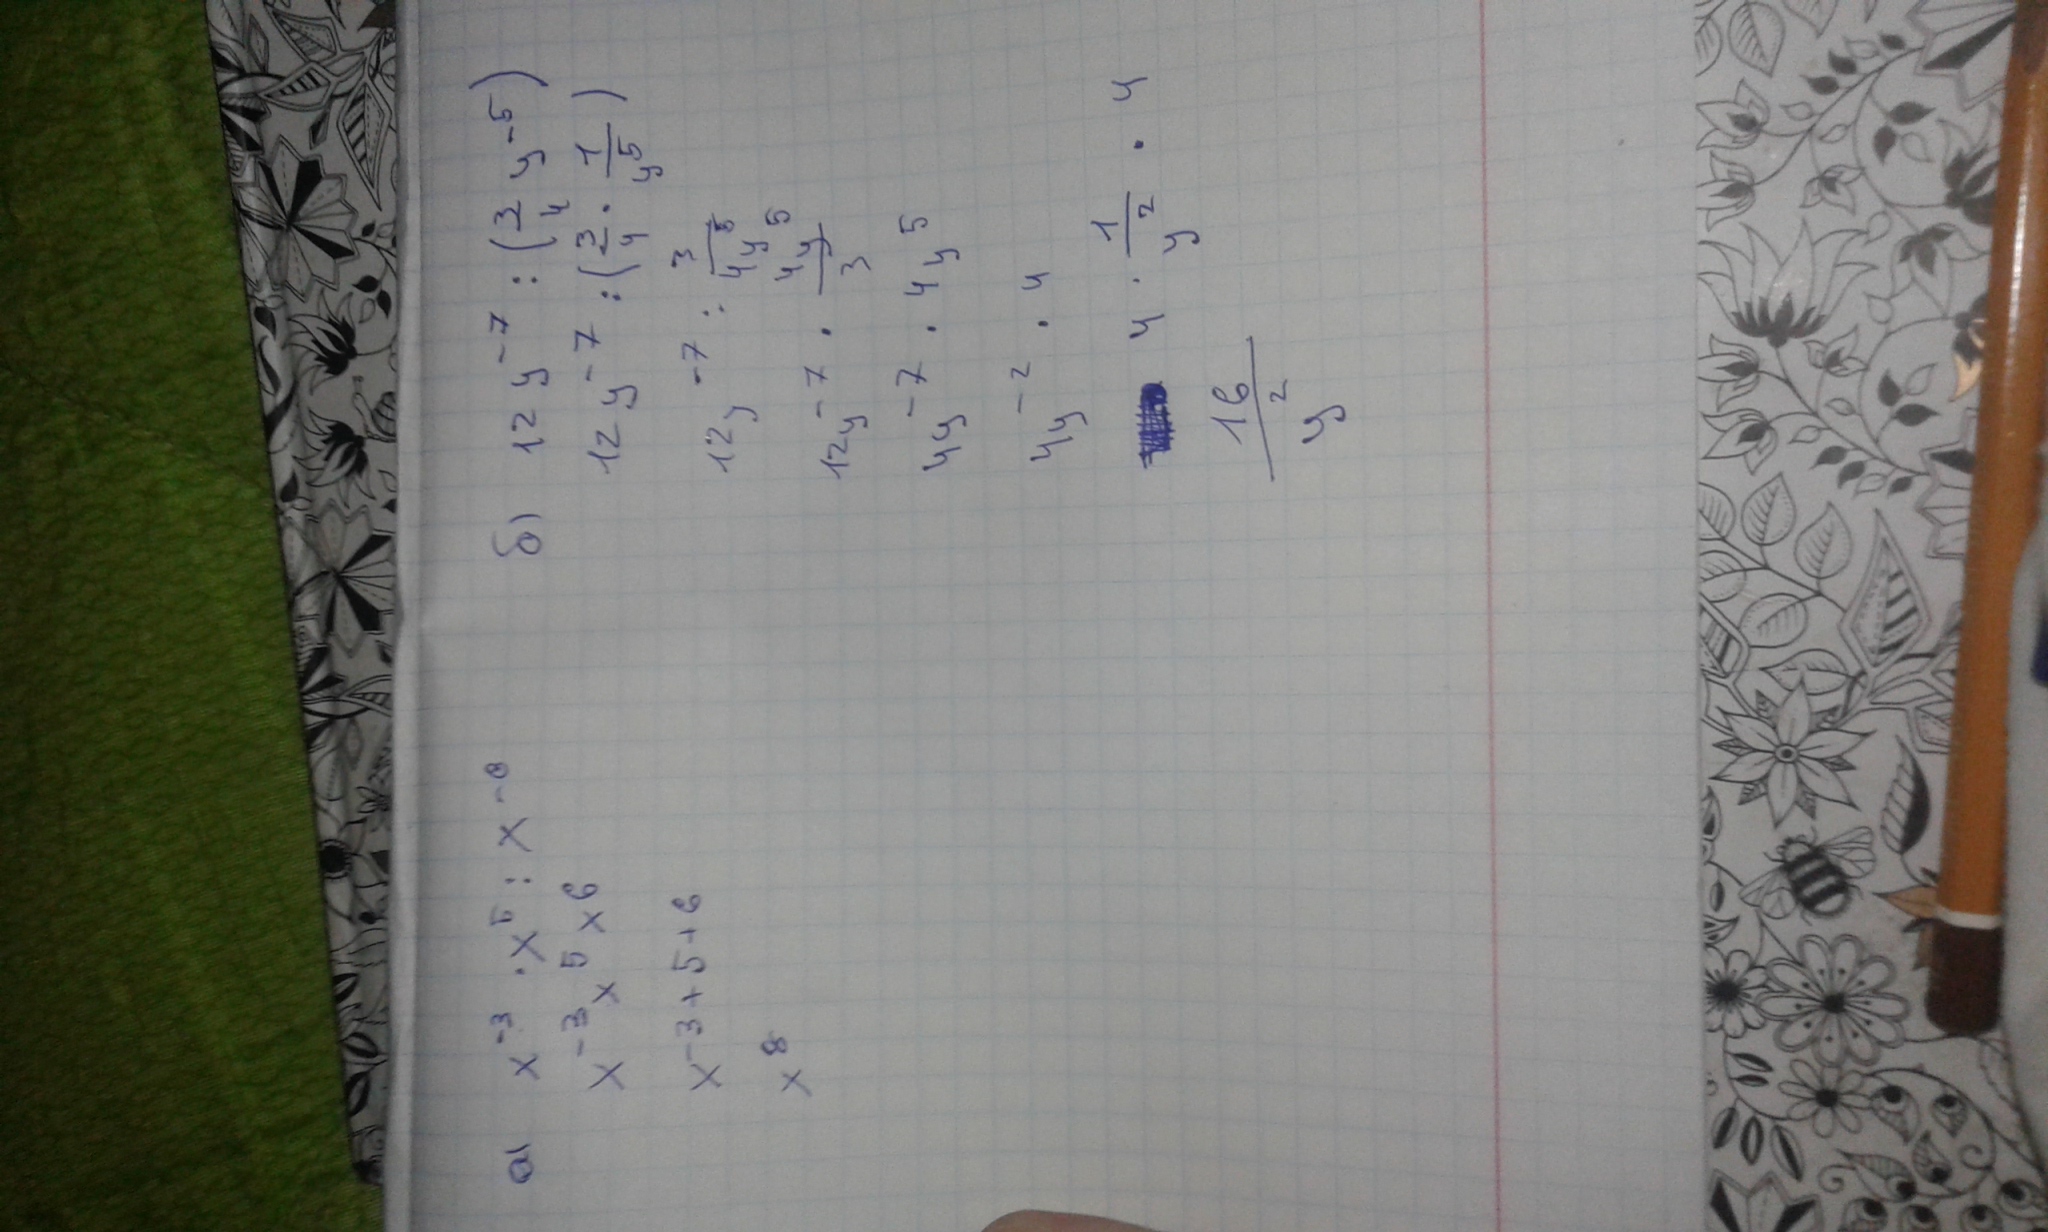 а) x⁻³ · x⁵ : x⁻⁶
x⁻³ x⁵ x⁶
x⁻³⁺⁵⁺⁶
x⁸
б) 12y⁻⁷ : (3/4 y⁻⁵)
12y⁻⁷ : (3/4 · 1/y⁵)
12y⁻⁷ : 3/4y⁵
12y⁻⁷ · 4y⁵/3
4y⁻⁷ · 4y⁵
4y⁻² · 4
4 · 1/y² · 4
16/y²